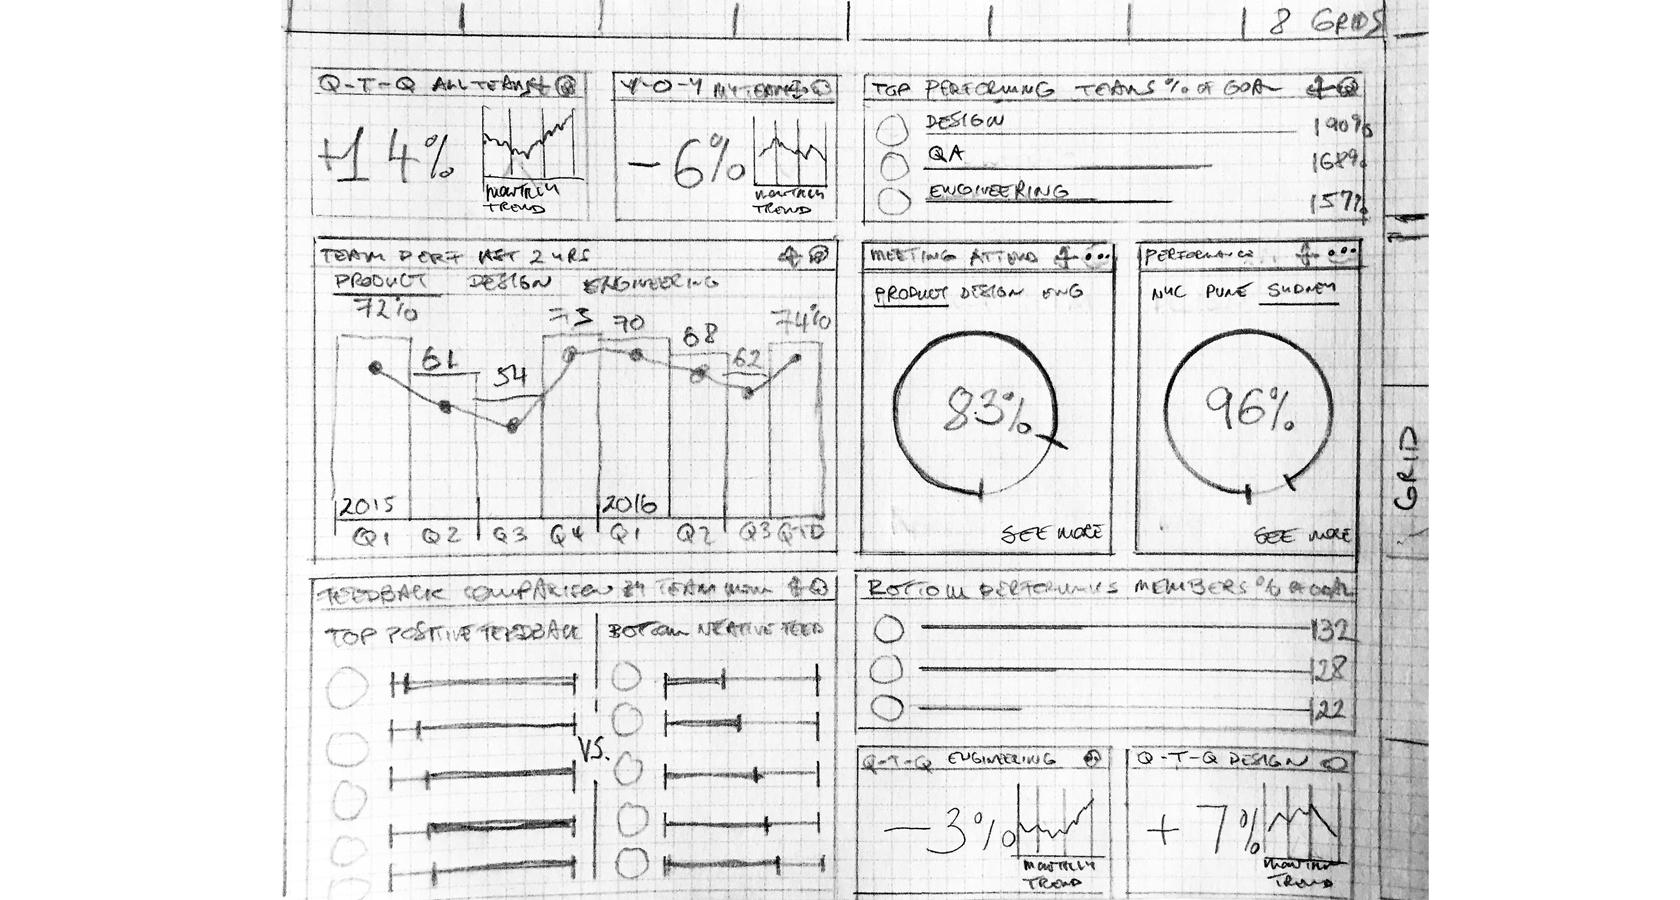 8 GRIDS
Q-T-Q ALL TEAMS
+14%
MONTHLY
TREND
Y-O-Y MY TEAM
-6%
MONTHLY
TREND
TOP PERFORMING TEAMS % OF GOAL
DESIGN
190%
QA
168%
ENGINEERING
157%
TEAM PERF LAST 2 YRS
PRODUCT DESIGN ENGINEERING
72% 61 54 73 70 68 62 74%
2015 2016
Q1 Q2 Q3 Q4 Q1 Q2 Q3 QTD
MEETING ATTEND
PRODUCT DESIGN ENG
83%
SEE MORE
PERFORMANCE
NYC PUNE SYDNEY
96%
SEE MORE
GRID
FEEDBACK COMPARISON BY TEAM
TOP POSITIVE FEEDBACK
VS.
BOTTOM NEATIVE FEED
BOTTOM PERFORMING MEMBERS % OF GOAL
132
128
122
Q-T-Q ENGINEERING
-3%
MONTHLY
TREND
Q-T-Q DESIGN
+7%
MONTHLY
TREND